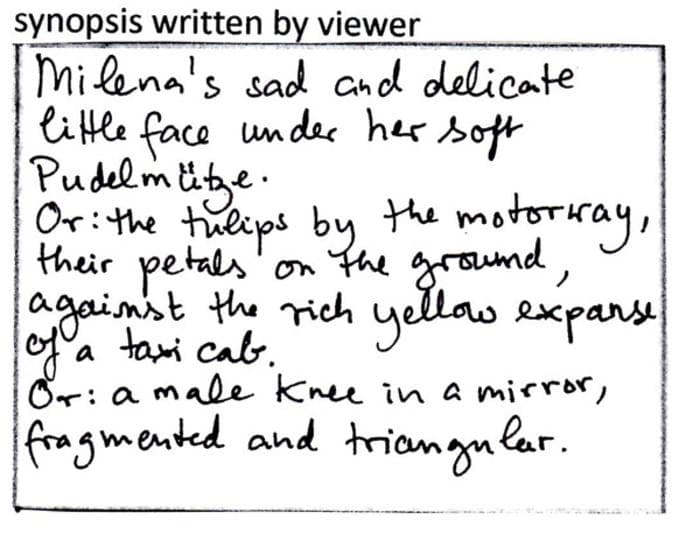 synopsis written by viewer
Milena's sad and delicate
little face under her soft
Pudelmütze.
Or: the tulips by the motorway,
their petals on the ground,
against the rich yellow expanse
of a taxi cab.
Or: a male knee in a mirror,
fragmented and triangular.